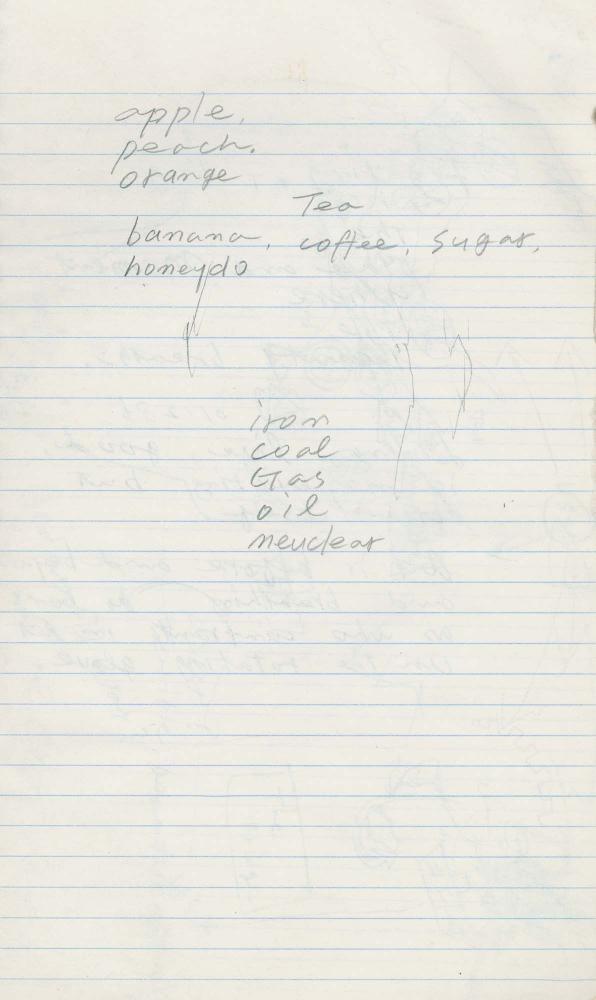 apple,
peach.
orange
Tea
banana, coffee, sugar,
honeydo
iron
coal
Gas
oil
neuclear